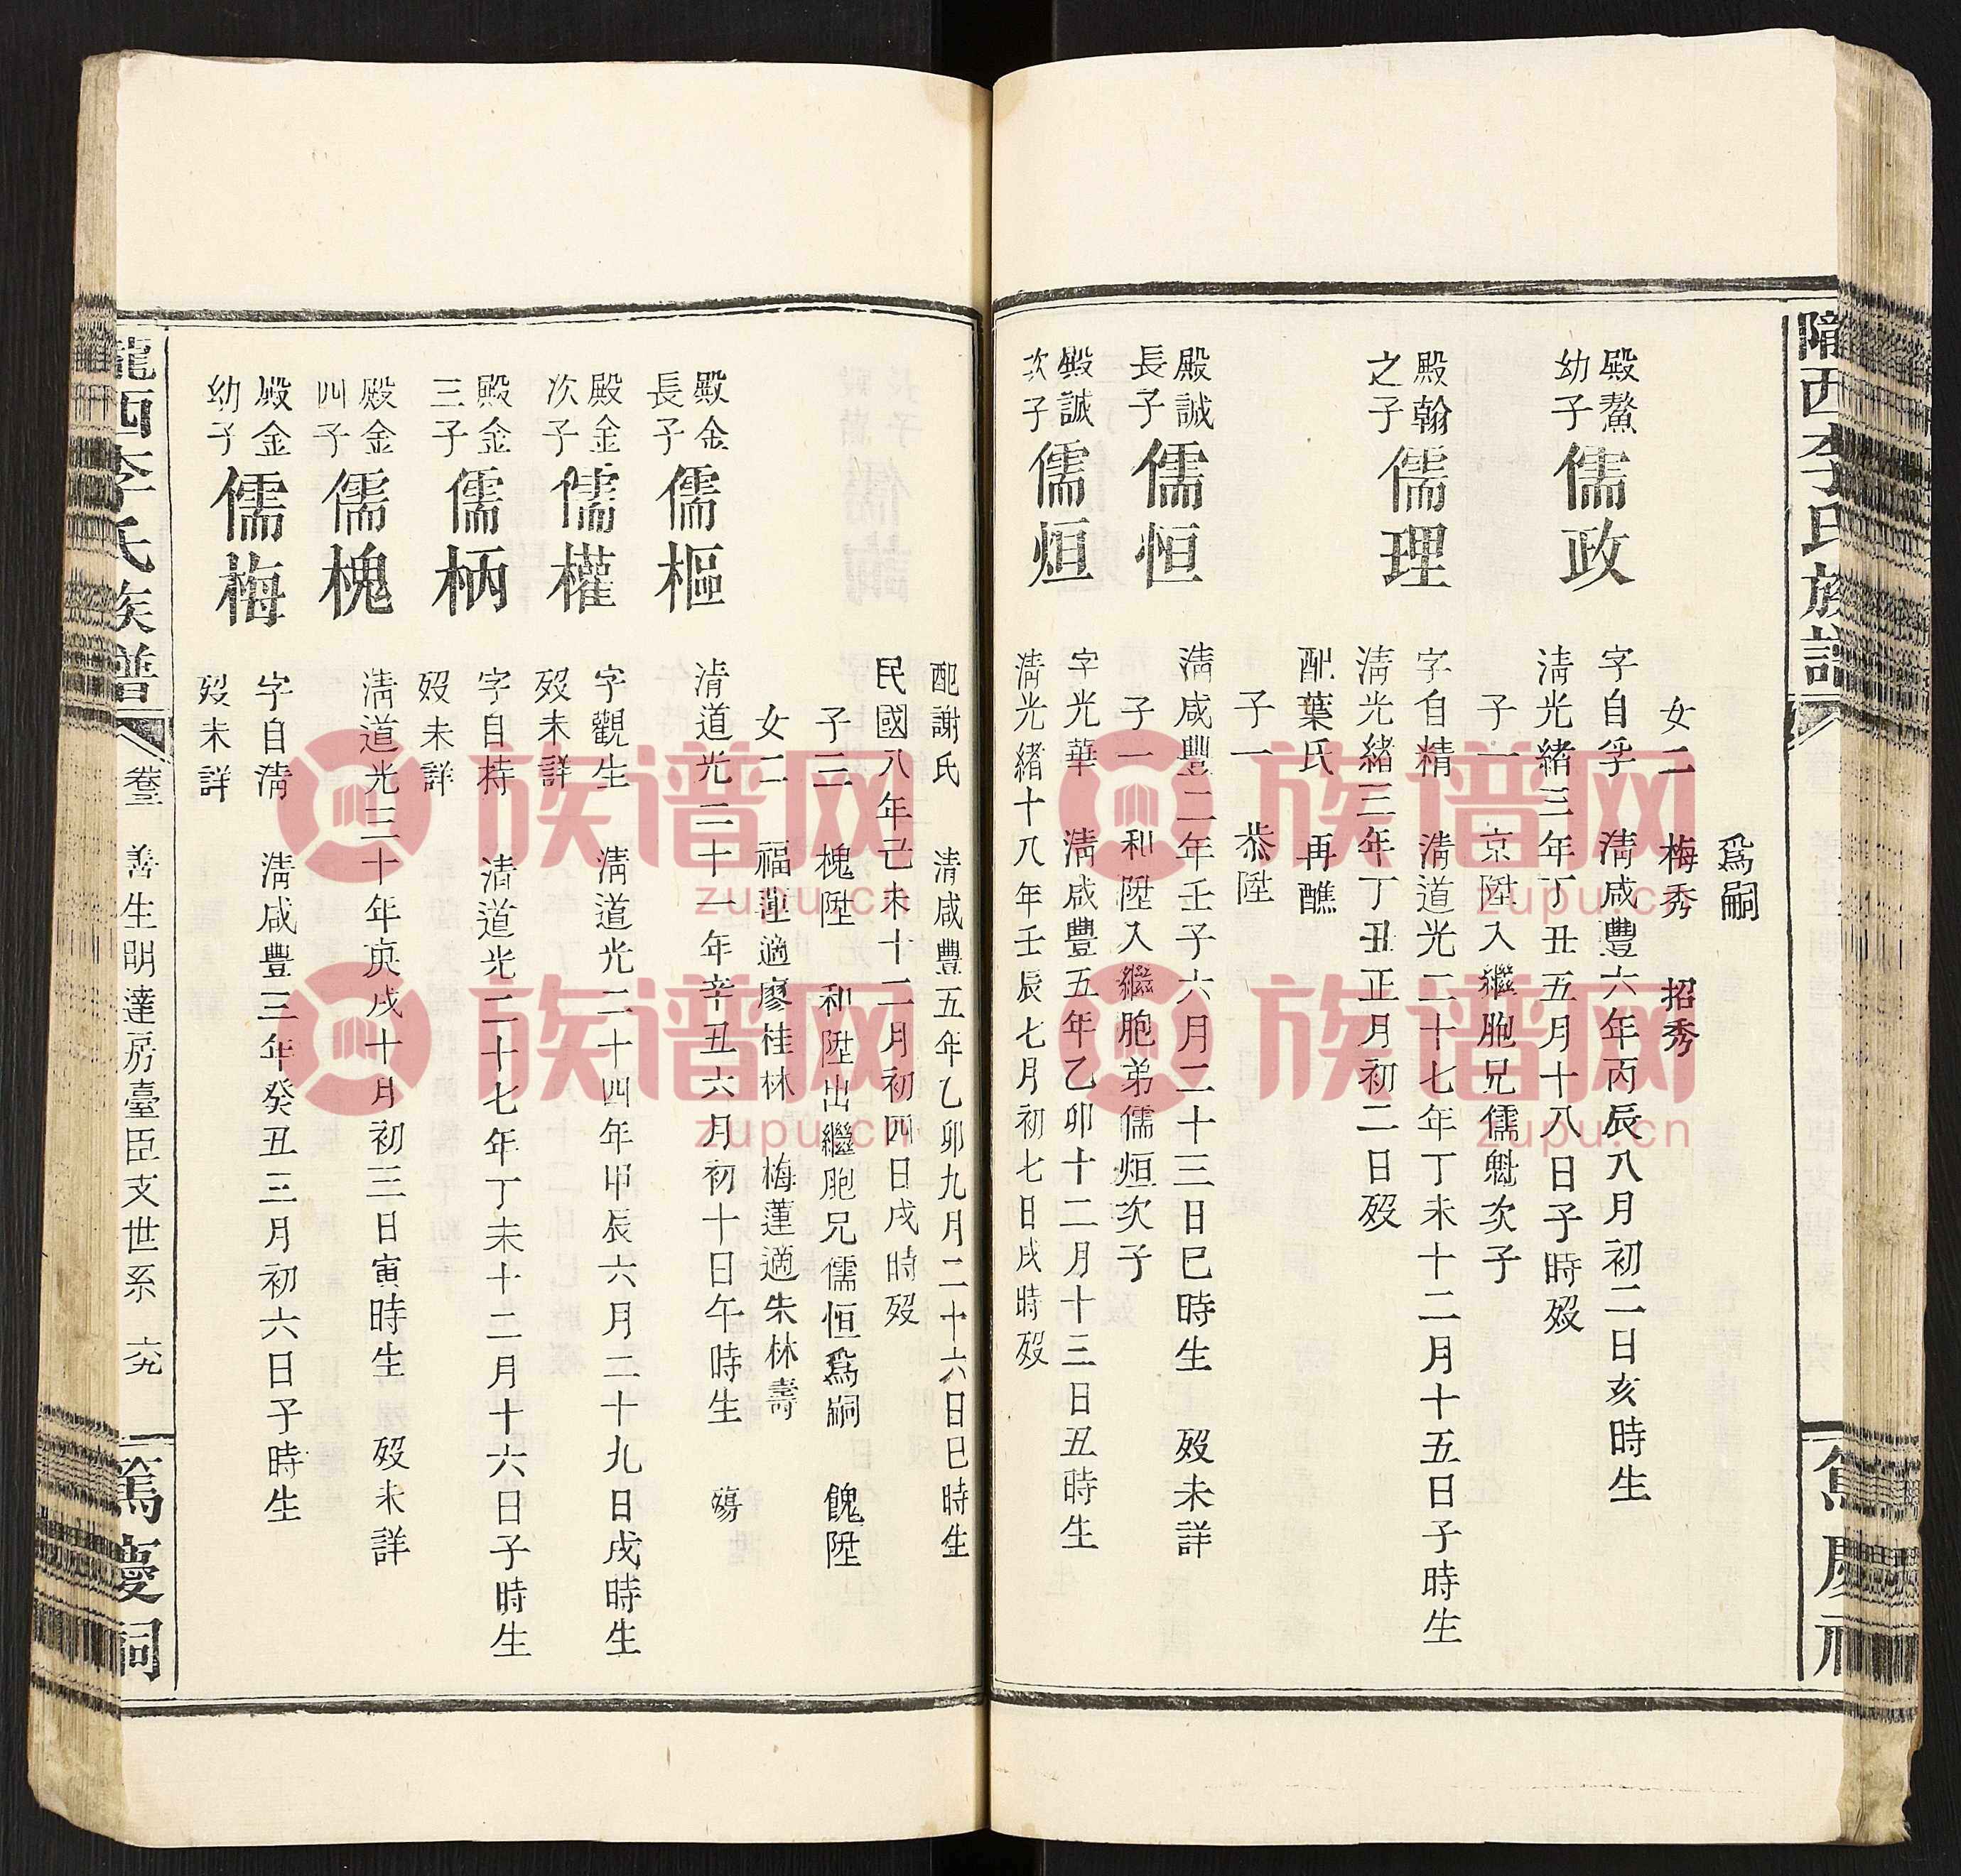 隴西李氏族譜
篤慶祠
爲嗣
女二 梅秀 招秀
殿鰲幼子
儒政
字自孚 清咸豐六年丙辰八月初二日亥時生
清光緒三年丁丑五月十八日子時歿
子一 京陞入繼胞兄儒魁次子
殿翰之子
儒理
字自精 清道光二十七年丁未十二月十五日子時生
清光緒三年丁丑正月初二日歿
配葉氏 再醮
子一 恭陞
殿誠長子
儒恒
清咸豐二年壬子六月二十三日巳時生 歿未詳
子一 和陞入繼胞弟儒烜次子
殿誠次子
儒烜
字光華 清咸豐五年乙卯十二月十三日丑時生
清光緒十八年壬辰七月初七日戌時歿
配謝氏 清咸豐五年乙卯九月二十六日巳時生
民國八年己未十二月初四日戌時歿
子三 槐陞 和陞出繼胞兄儒恒爲嗣 餽陞
女二 福蓮適廖桂林 梅蓮適朱林壽
殿金長子
儒樞
清道光二十一年辛丑六月初十日午時生 殤
殿金次子
儒權
字觀生 清道光二十四年甲辰六月二十九日戌時生
歿未詳
殿金三子
儒柄
字自持 清道光二十七年丁未十二月十六日子時生
歿未詳
殿金四子
儒槐
清道光三十年庚戌十月初三日寅時生 歿未詳
殿金幼子
儒梅
字自清 清咸豐三年癸丑三月初六日子時生
歿未詳
隴西李氏族譜
卷三 善生明達房臺臣支世系 六九
篤慶祠
族谱网
zupu.cn
族谱网
zupu.cn
族谱网
zupu.cn
族谱网
zupu.cn